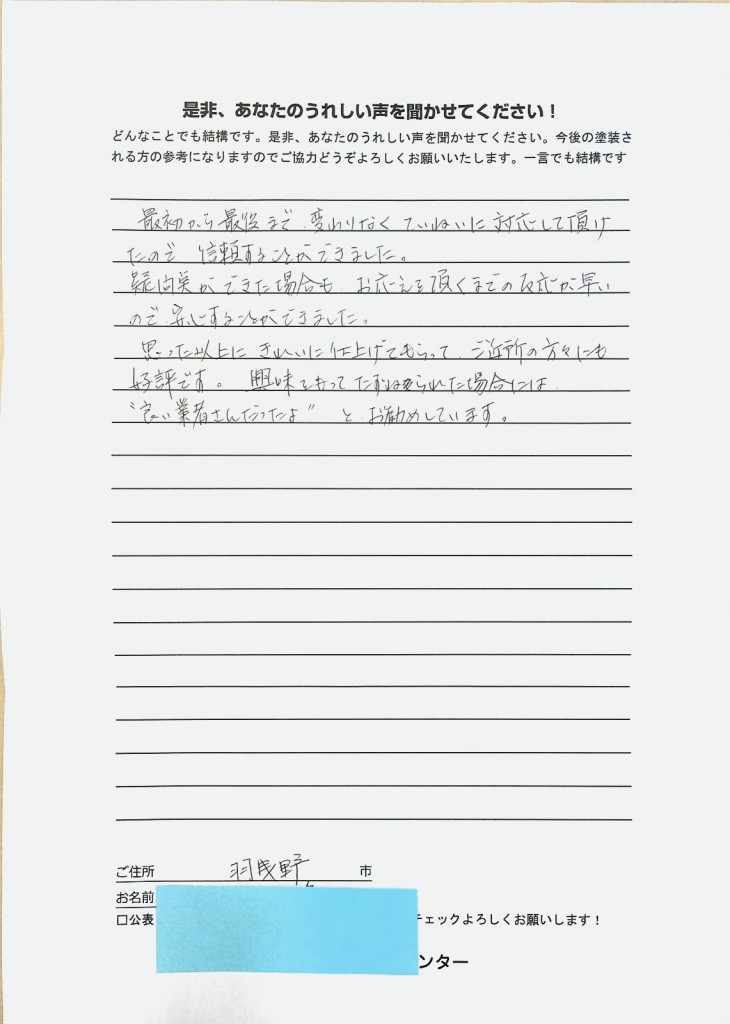 是非、あなたのうれしい声を聞かせてください！
どんなことでも結構です。是非、あなたのうれしい声を聞かせてください。今後の塗装さ
れる方の参考になりますのでご協力どうぞよろしくお願いいたします。一言でも結構です
最初から最後まで、変わりなくていねいに対応して頂け
たので 信頼することができました。
疑問点ができた場合も、お応えを頂くまでの反応が早い
ので、安心することができました。
思った以上に きれいに仕上げてもらって、ご近所の方々にも
好評です。 興味をもって たずねられた場合には、
“良い業者さんだったよ” と、お勧めしています。
ご住所 羽曳野 市
お名前
□公表 チェックよろしくお願いします！
ンター